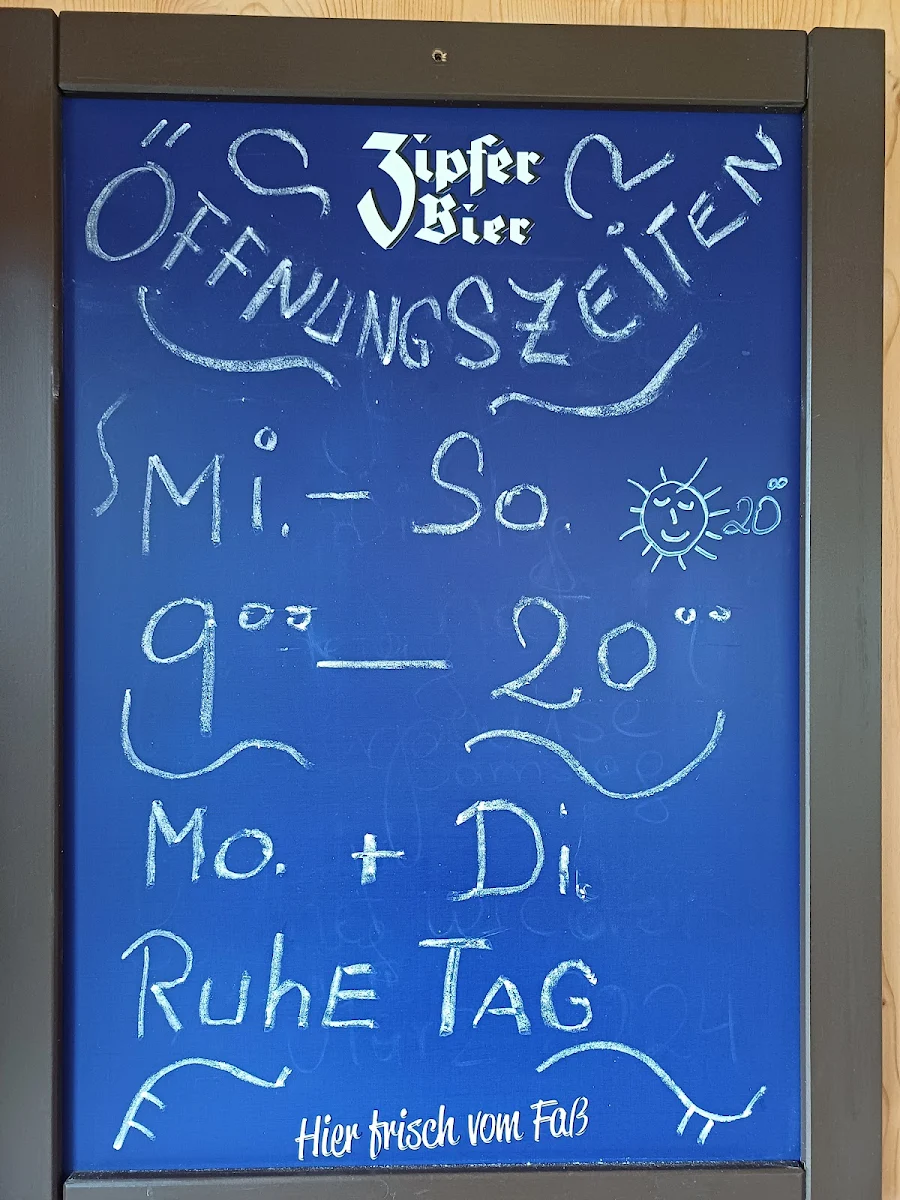 Zipfer
Bier
ÖFFNUNGSZEiTEN
Mi. - So.
20⁰⁰
9⁰⁰ — 20⁰⁰
Mo. + Di.
RuhE TAG
Hier frisch vom Faß